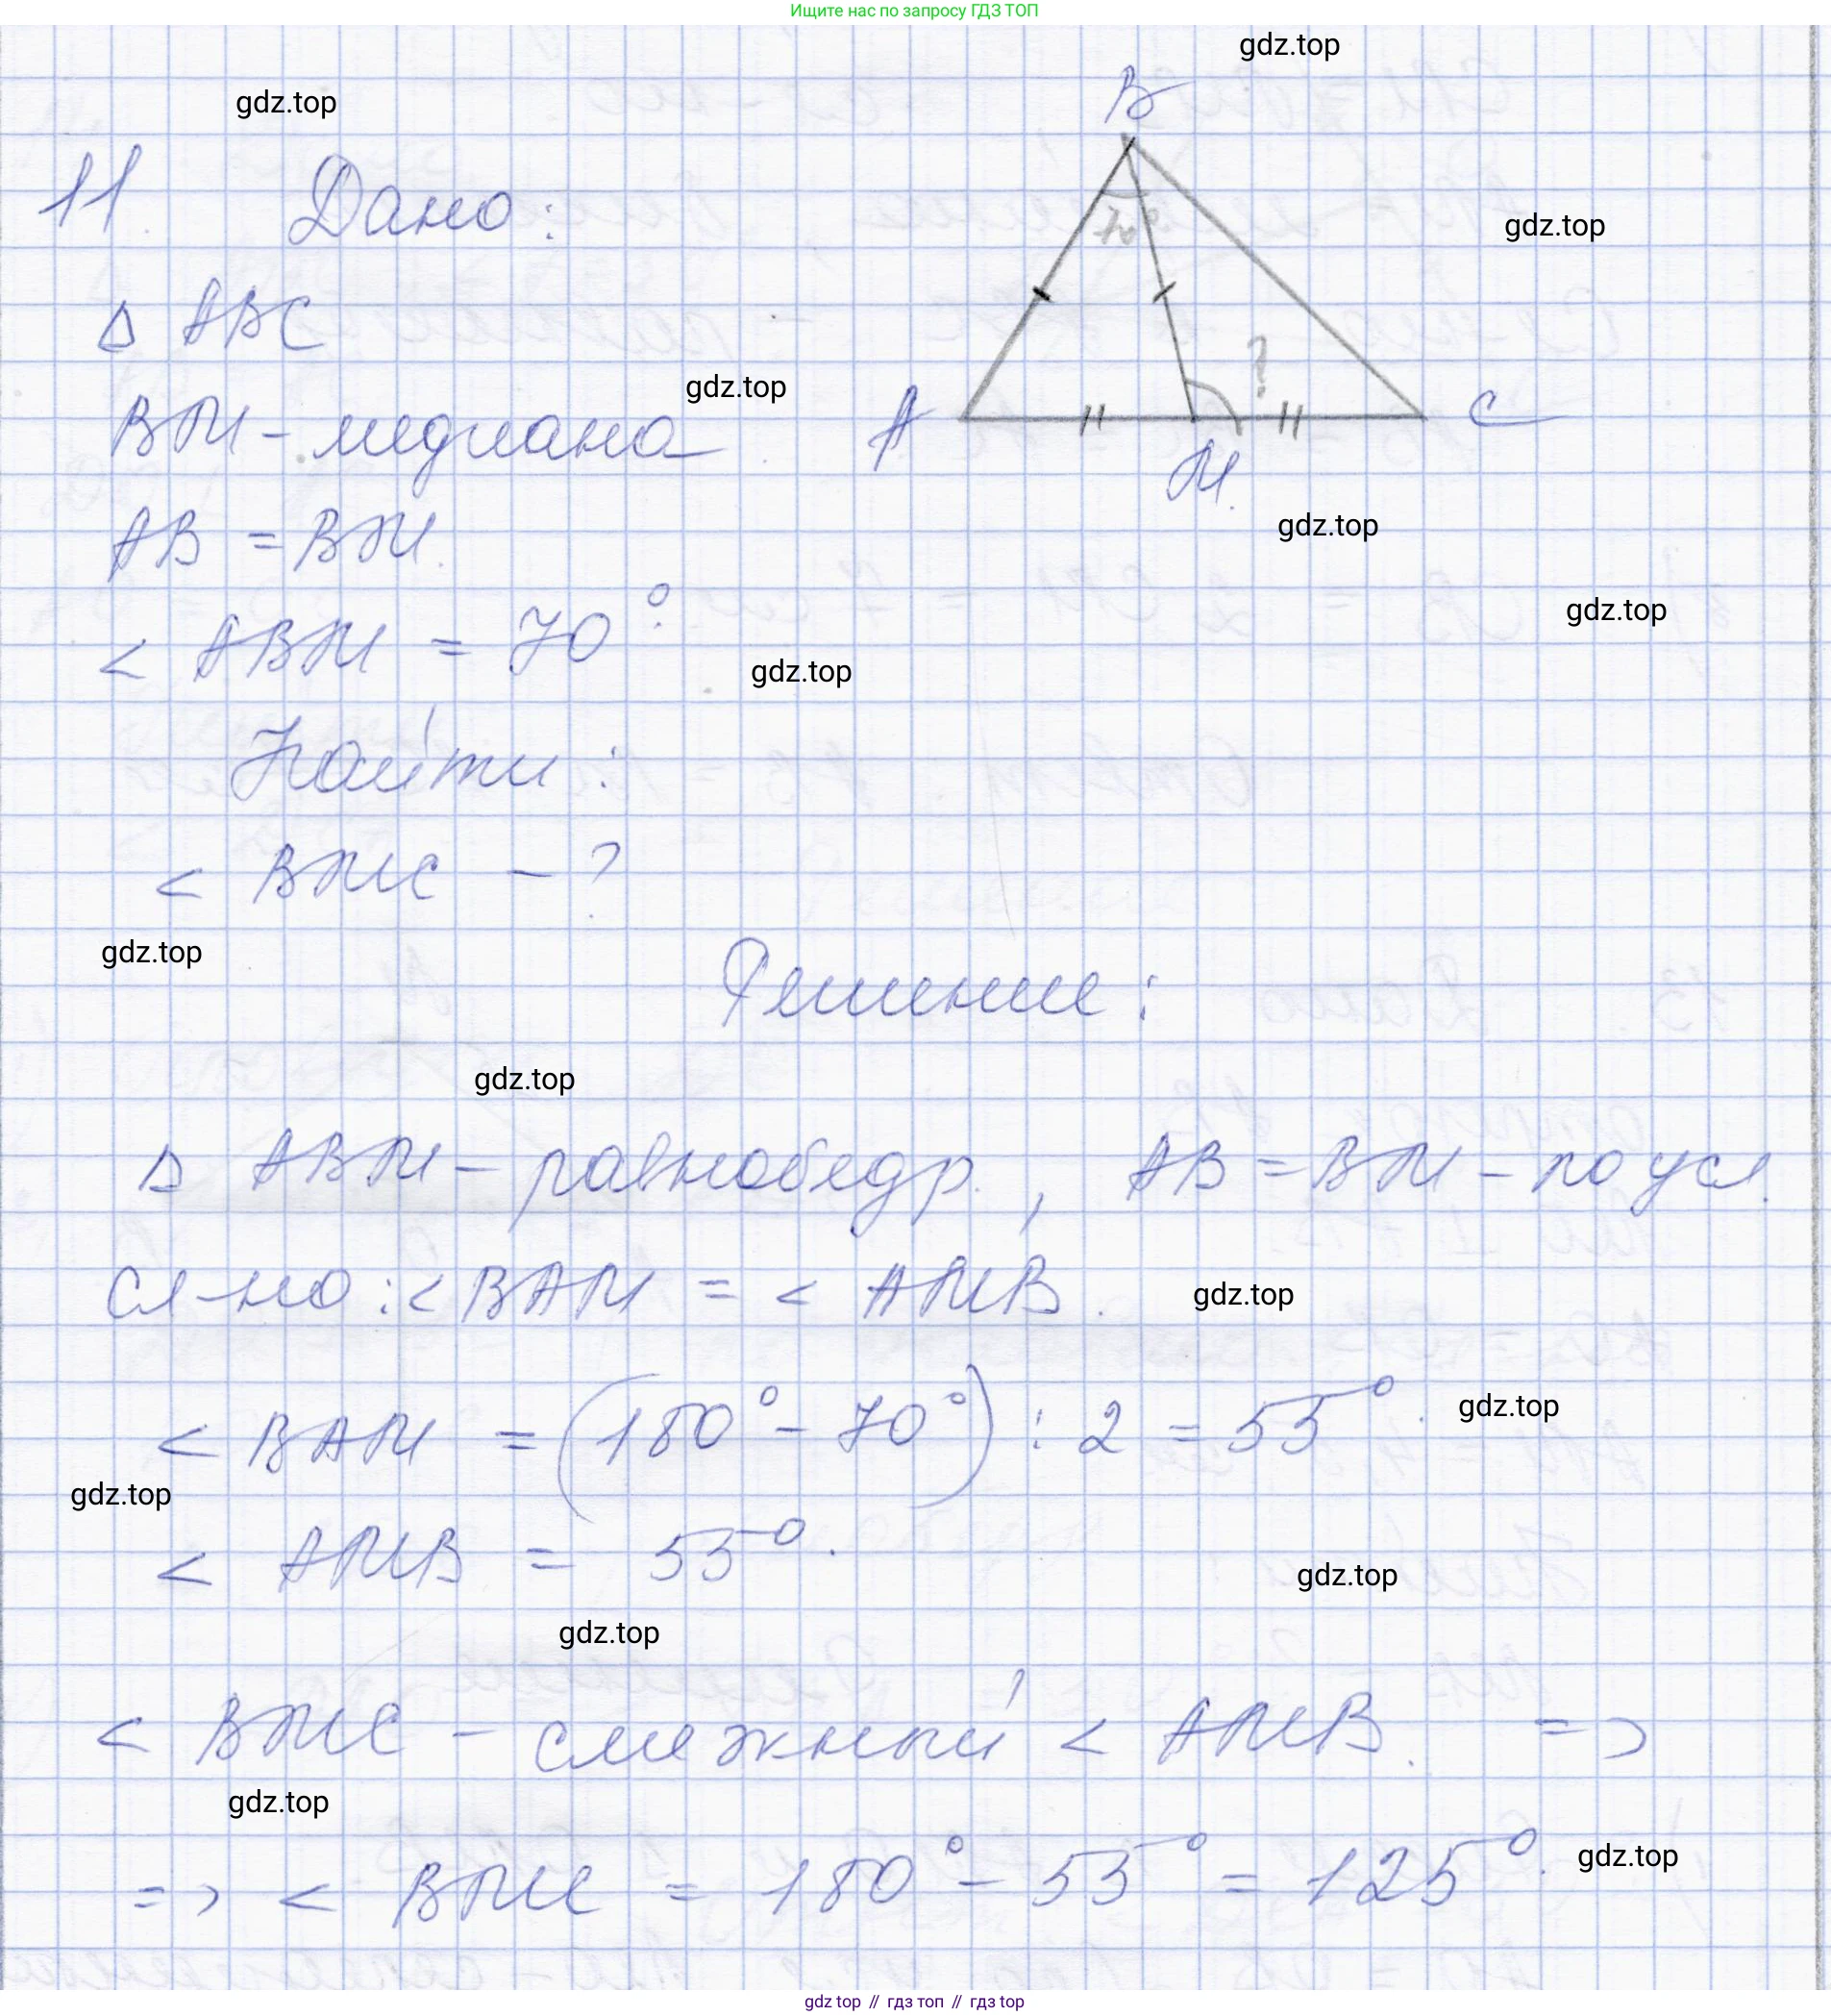 Ищите нас по запросу ГДЗ ТОП
gdz.top
gdz.top
B
11. Дано:
70°
gdz.top
∆ ABC
?
gdz.top
BM - медиана
A
C
M.
AB = BM.
gdz.top
< ABM = 70°.
gdz.top
gdz.top
Найти:
< BMC - ?
gdz.top
Решение:
gdz.top
∆ ABM - равнобедр., AB = BM - по усл.
сл-но: < BAM = < AMB.
gdz.top
< BAM = (180° - 70°) : 2 = 55°.
gdz.top
gdz.top
< AMB = 55°.
gdz.top
gdz.top
< BMC - смежный < AMB. =>
gdz.top
=> < BMC = 180° - 55° = 125°.
gdz.top
gdz top // гдз топ // гдз top